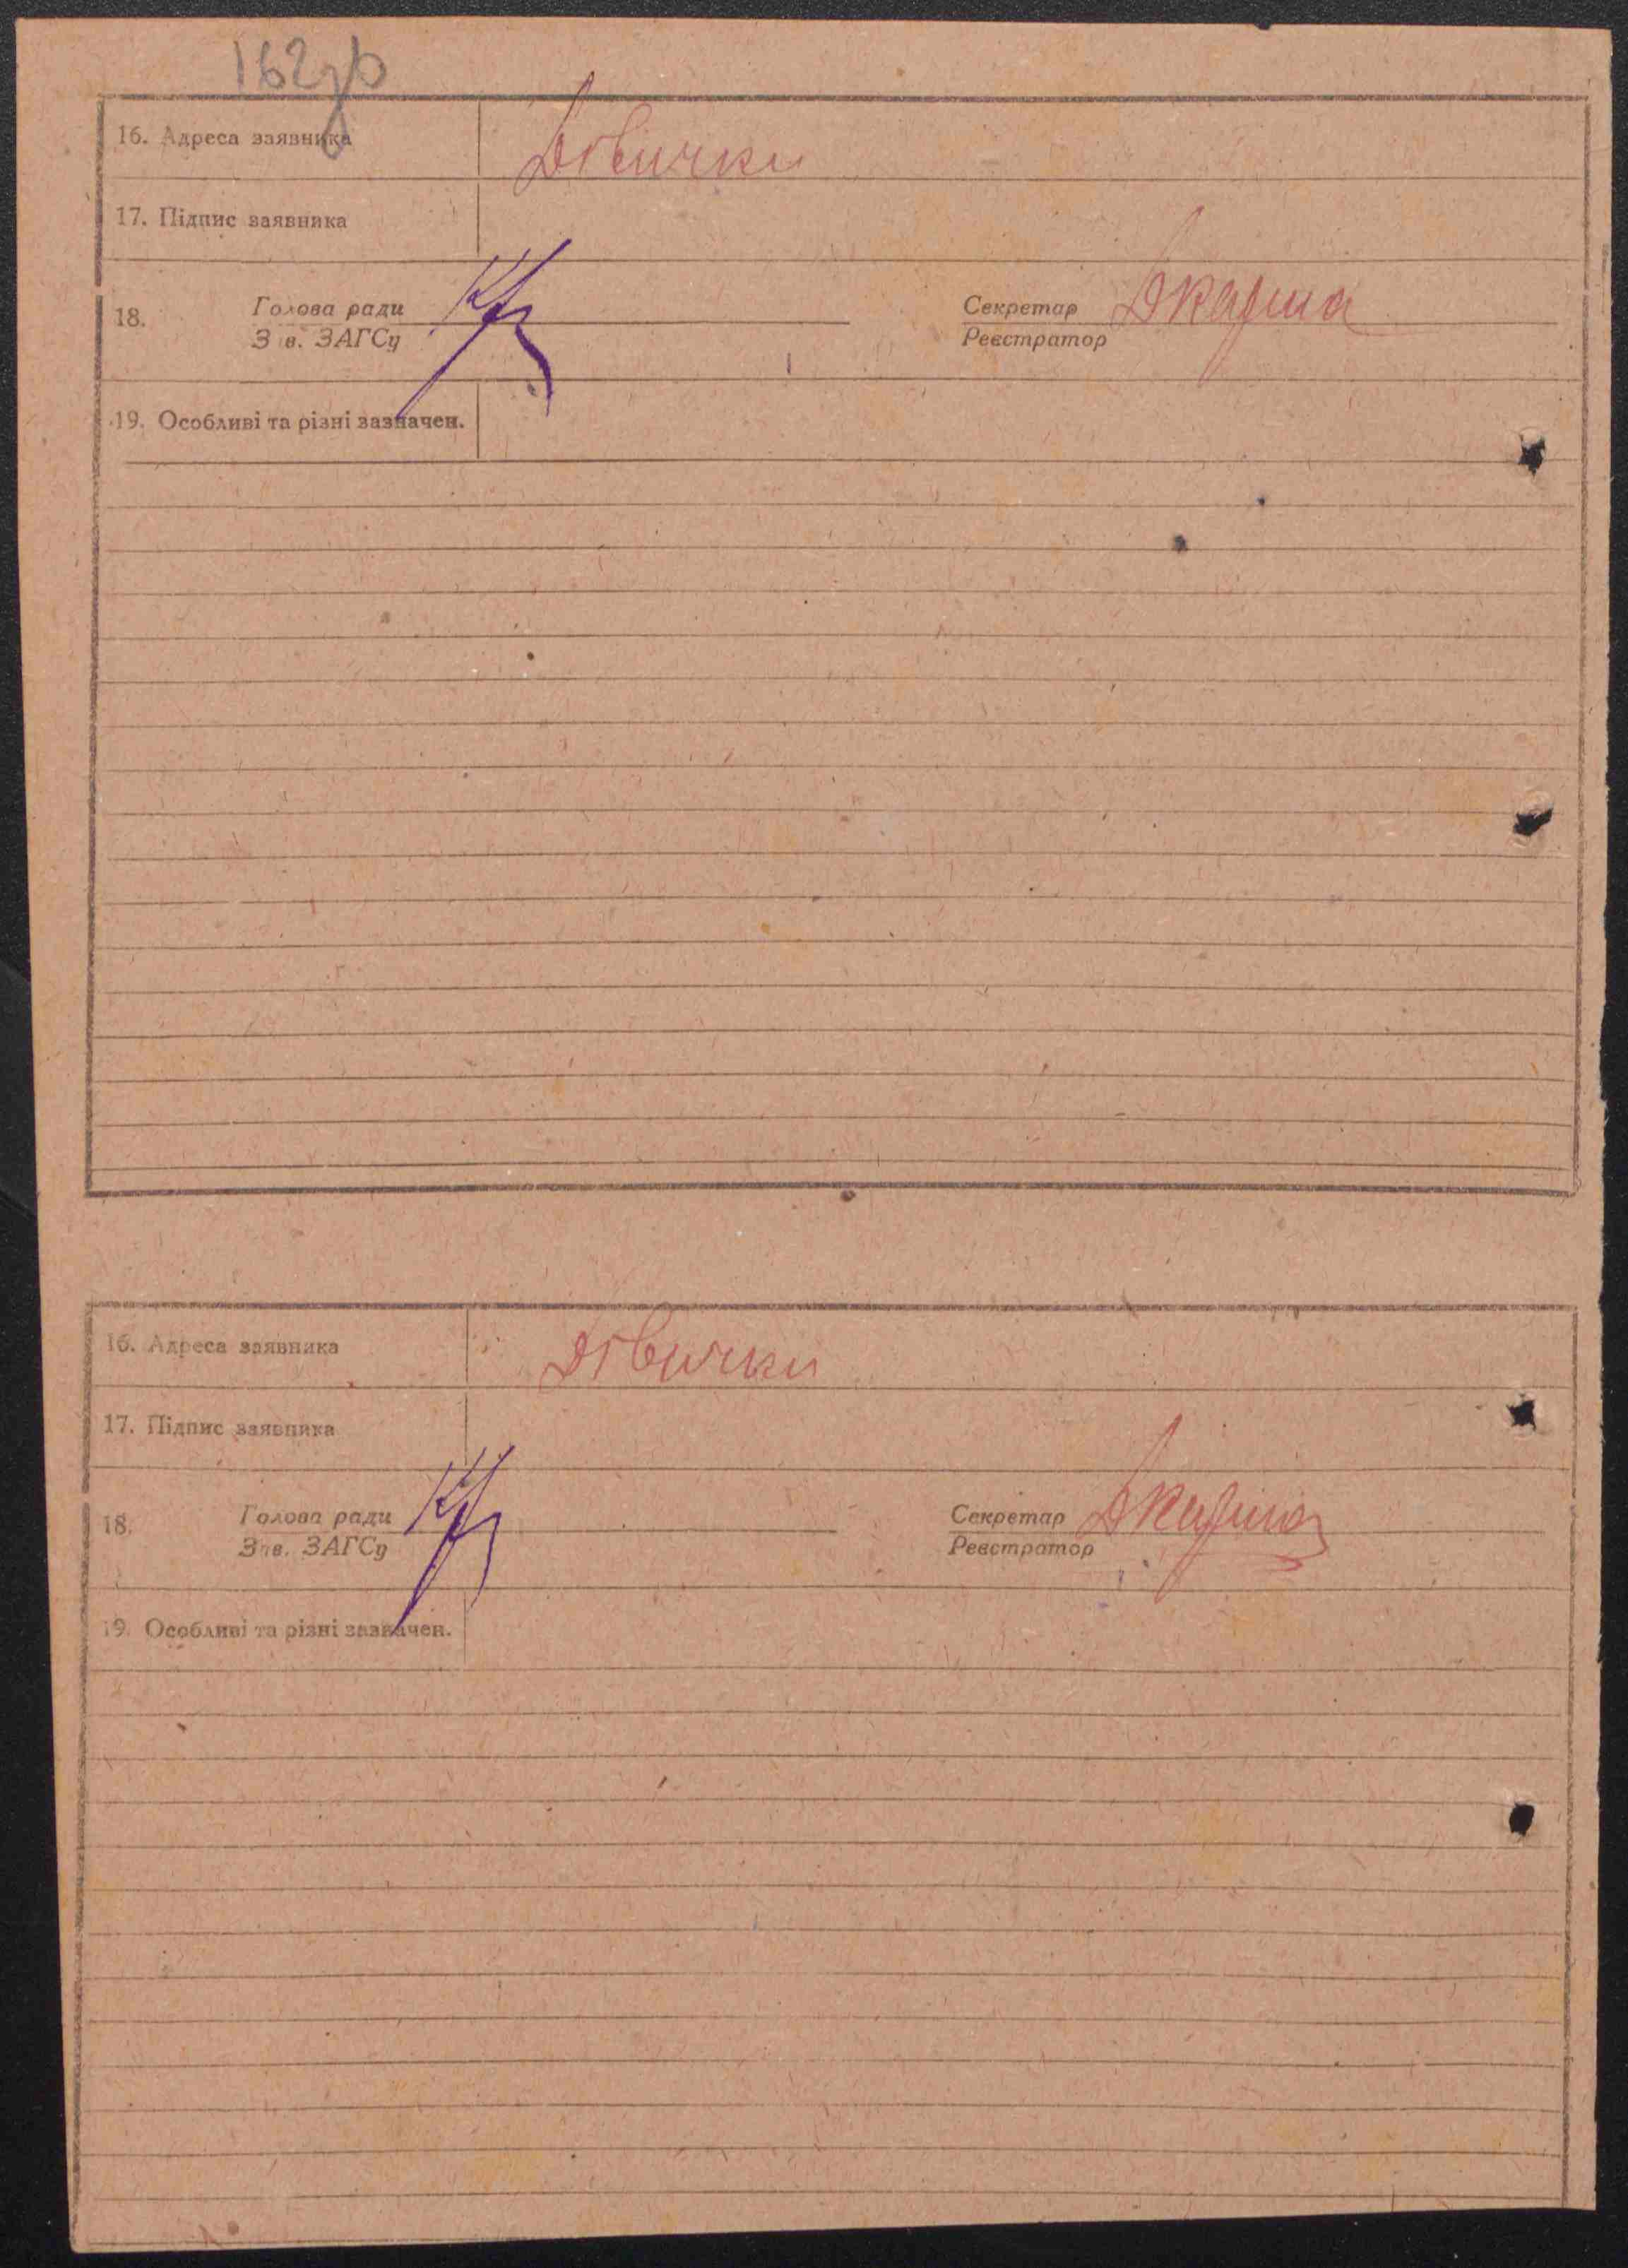 162зв
16. Адреса заявника Дівички
17. Підпис заявника
18. Голова ради Секретар
Зав. ЗАГСу Реєстратор
19. Особливі та різні зазначен.
16. Адреса заявника Дівички
17. Підпис заявника
18. Голова ради Секретар
Зав. ЗАГСу Реєстратор
19. Особливі та різні зазначен.